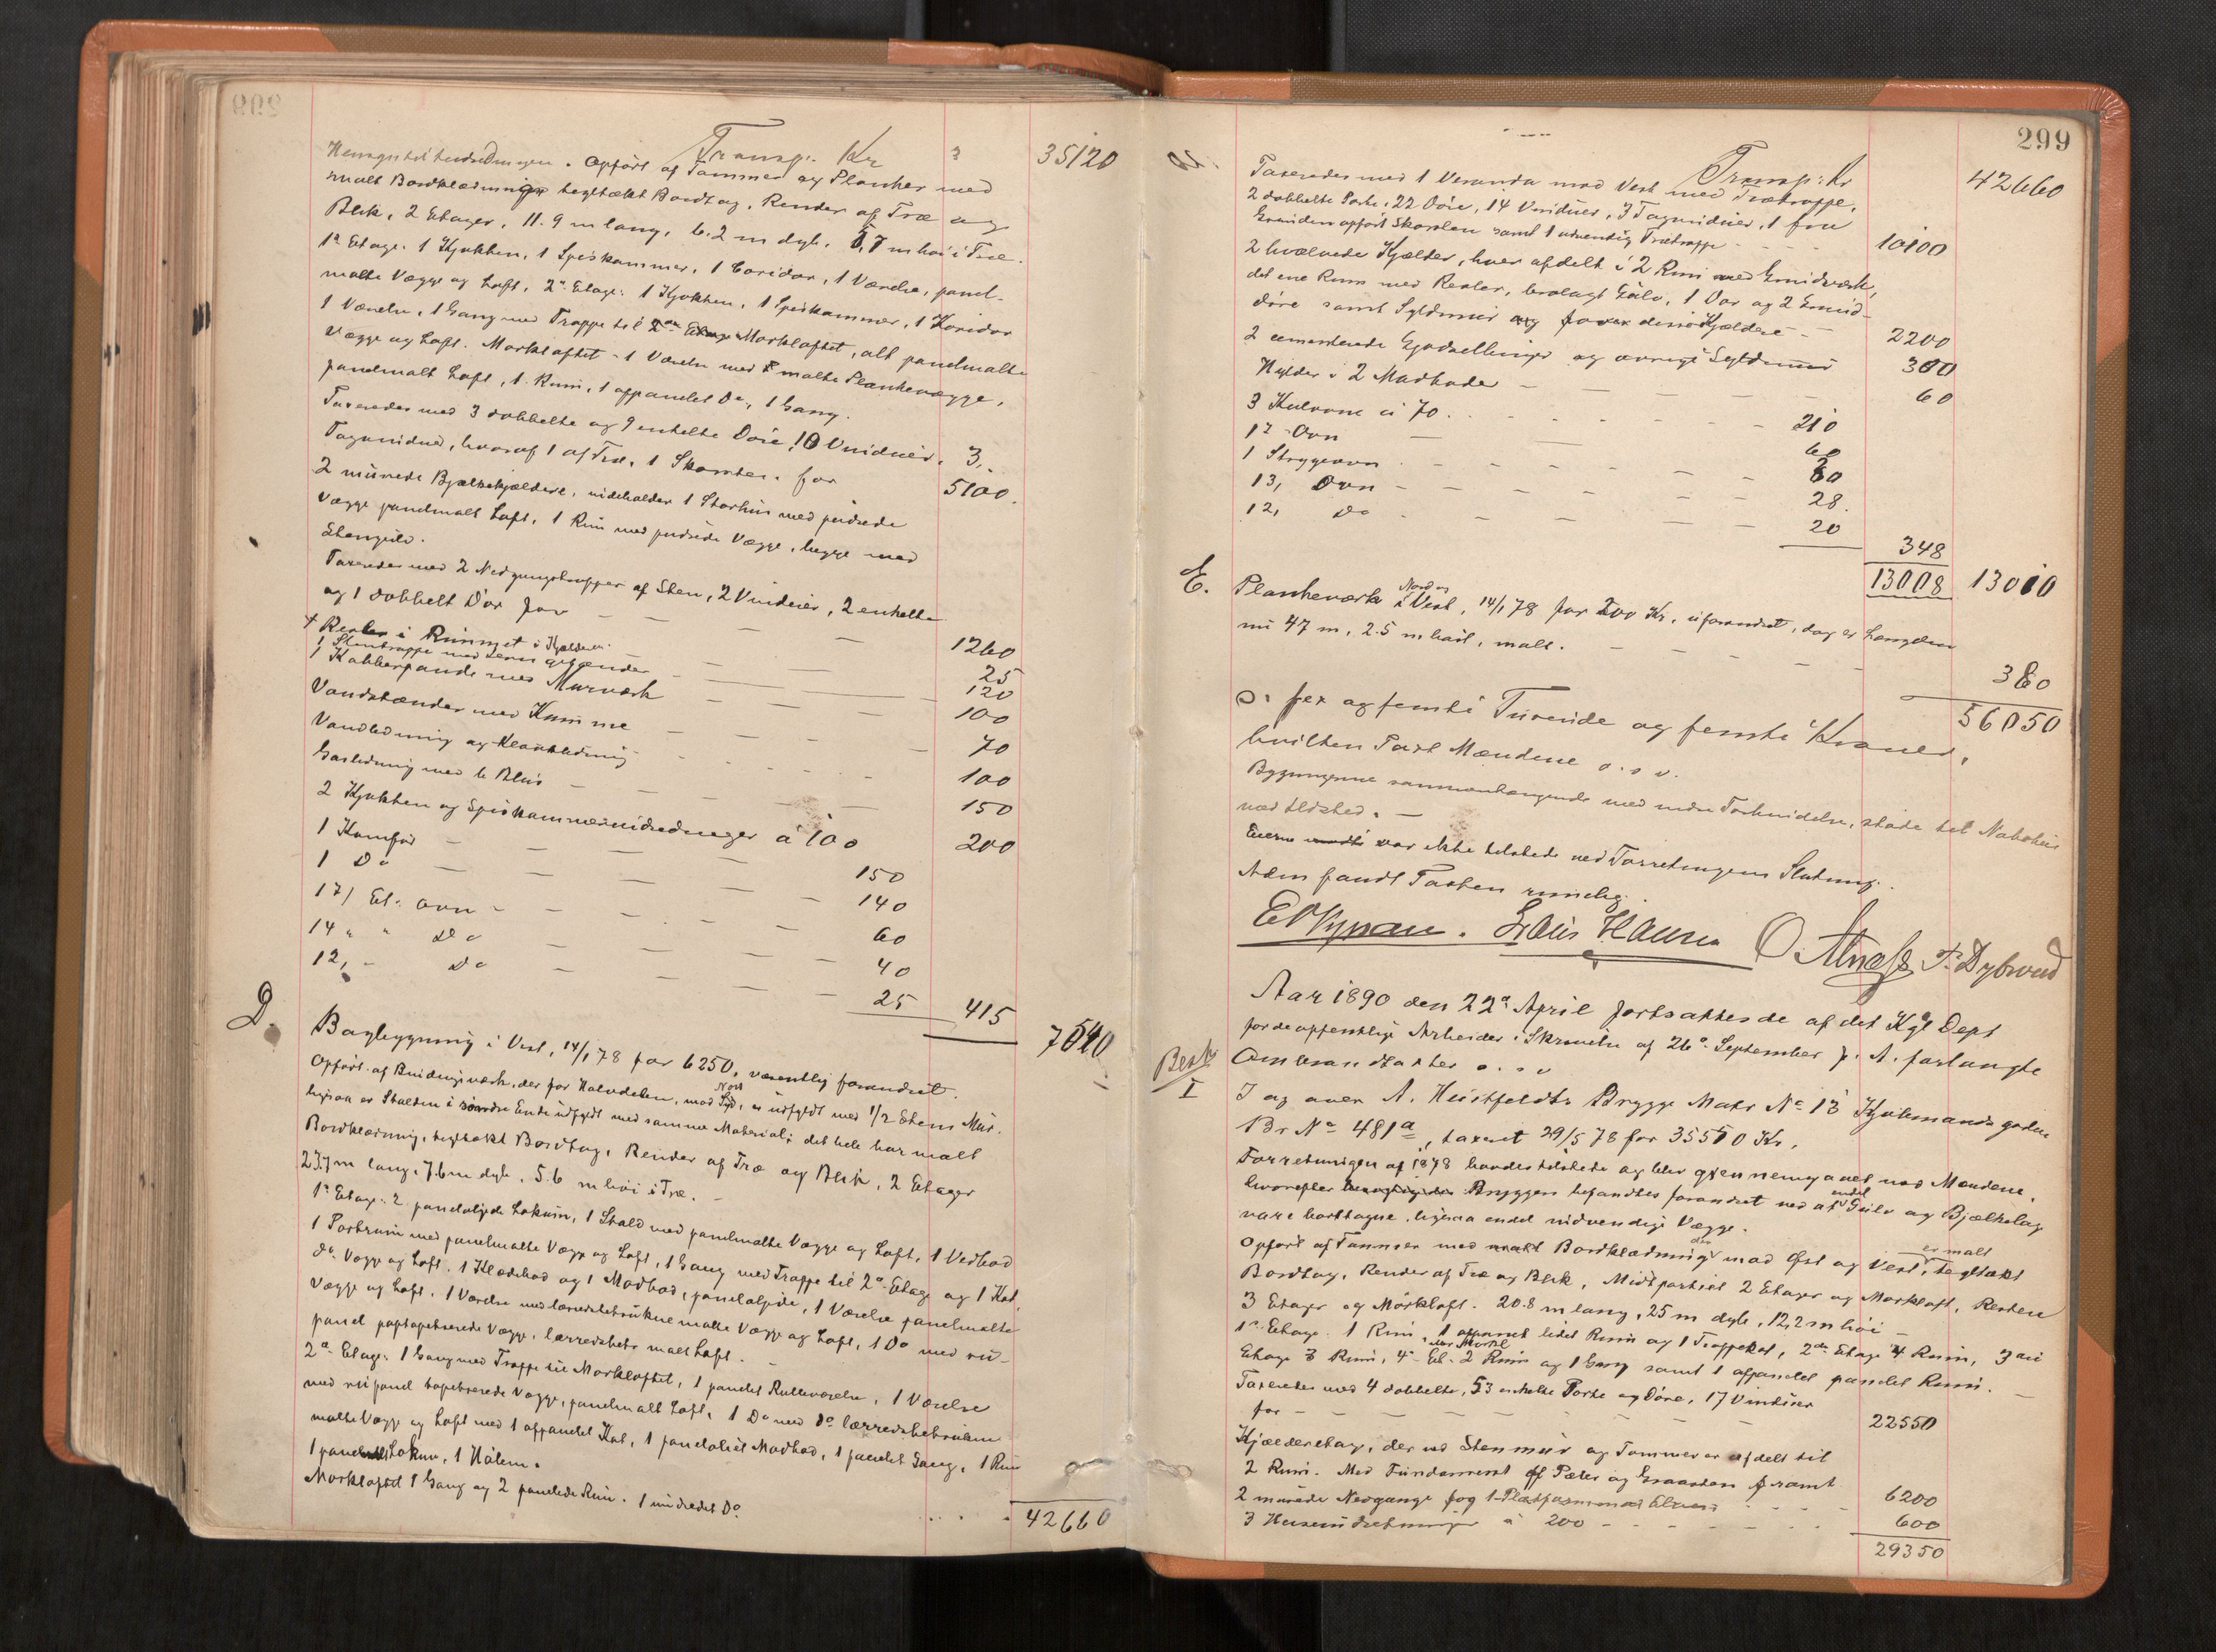 Transp. Kr 35120
Opført af Tømmer og Planker med
malt Bordklædning tegltækt Bordtag, Render af Træ og
Blik, 2 Etager, 11.9 m lang, 6.2 m dyb, m høi i Træ.
1ste Etage. 1 Kjøkken, 1 Spiskammer, 1 Coridor, 1 Værelse, panel-
malte Vægge og Loft, 2den Etage: 1 Kjøkken, 1 Spiskammer, 1 Koridor
1 Værelse, 1 Gang med Trappe til Mørkloftet, alt panelmalte
Vægge og Loft. Mørkloftet - 1 Værelse med malte Plankevægge,
panelmalt Loft, 1 Rum, 1 afpanelet Do, 1 Gang.
Taxeredes med 3 dobbelte og 9 enkelte Døre, 10 Vinduer, 3
Tagvinduer, hvoraf 1 af Træ, 1 Skorsten for 5100.
2 murede Bjælkekjældere, indeholder 1 Storhus med pudsede
Vægge panelmalt Loft, 1 Rum med pudsede Vægge, begge med
Stengulv.
Taxeredes med 2 Nedgangstrapper af Sten, 2 Vinduer, 2 enkelte
og 1 dobbelt Dør for 1260
4 Reoler i Rummet i Kjælderen 25
1 Stentrappe med Jern 120
1 Kobberpande med Murværk 100
Vandstænder med Kumme 70
Vandledning og Kloakledning 100
Gasledning med 6 Blus 150
2 Kjøkken og Spiskammerindredninger à 100 200
1 Komfur 150
1 Do 140
17/ Et. Ovn 60
14 " " Do 40
12, " Do 25 415
7540
D. Bagbygning i Vest, 14/1 78 for 6250, væsentlig forandret.
Opført af Bindingsværk, der for Halvdelen, mod Nord, er udfyldt med 1/2 Stens Mur.
ligesaa er Stalden i søndre Ende udfyldt med samme Materiale; det hele har malt
Bordklædning, tegltækt Bordtag, Render af Træ og Blik, 2 Etager
23.7 m lang, 7.6 m dyb, 5.6 m høi i Træ.
1ste Etage: 2 paneloljede Lokum, 1 Stald med panelmalte Vægge og Loft, 1 Vedbod
1 Portrum med panelmalte Vægge og Loft, 1 Gang med Trappe til 2den Etage og 1 Kot,
do. Vægge og Loft, 1 Klædebod og 1 Madbod, paneloljede, 1 Værelse panelmalte
Vægge og Loft, 1 Værelse med lærredsbetrukne malte Vægge og Loft, 1 Do med
panel paptapetserede Vægge, lærredsbetr. malt Loft.
2den Etage: 1 Gang med Trappe til Mørkloftet, 1 panelet Rulleværelse, 1 Værelse
med panel tapetserede Vægge, panelmalt Loft, 1 Do med do lærredsbetrukne
malte Vægge og Loft med 1 afpanelet Kot, 1 paneloljet Madbod, 1 panelet Gang, 1 Rum
1 panelmalt Lokum, 1 Hølem.
Mørkloftet 1 Gang og 2 panelede Rum. 1 indredet Do
42660
299
Transp. Kr 42660
Taxeredes med 1 Veranda mod Vest med Trætrappe,
2 dobbelte Porte, 22 Døre, 14 Vinduer, 3 Tagvinduer, 1 fra
Grunden opført Skorsten samt 1 udvendig Trætrappe 10100
2 hvælvede Kjælder, hver afdelt i 2 Rum med Grindværk,
det ene Rum med Reoler, brolagt Gulv, 1 Dør og 2 Grind-
døre samt Syldmur for disse Kjældere 2200
2 cementerede Gjødselbinger og øvrige Syldmur 300
Hylder i 2 Madboder 60
3 Kulovne à 70 210
12 Ovn 60
1 Strygeovn 30
13, Ovn 28.
12, Do 20
348
13008 13010
E. Plankeværk i Nord og Vest, 14/1 78 for 200 Kr, uforandret, dog er Længden
nu 47 m, 2.5 m høit, malt. 380
56050
: sex og femti Tusende og femti Kroner,
hvilken Taxt Mændene o. s. v.
Bygningerne sammenhængende med Nabohus
ved Ildsted.
Eieren var ikke tilstede ved Forretningens Slutning.
Adm fandt Taxten rimelig.
O. Alnæss P. Dybwad
Aar 1890 den 22de April fortsattes de af det Kgl Dept
for de offentlige Arbeider i Skrivelse af 26de September f. A. forlangte
Besk. Ombrandtakster o. s. v
I I og over A. Huitfeldts Brygge Matr No 13 Kjøbmandsgaden
Br No 481a, taxeret 29/5 78 for 35550 Kr,
Forretningen af 1878 havdes tilstede og blev gjennemgaaet med Mændene,
hvorefter Bryggen befandtes forandret ved at endel Gulv og Bjælkelag
vare borttagne, ligesaa endel indvendige Vægge.
Opført af Tømmer med Bordklædning der mod Øst og Vest er malt, tegltækt
Bordtag, Render af Træ og Blik, Midtpartiet 2 Etager og Mørkloft, Resten
3 Etager og Mørkloft. 20.8 m lang, 25 m dyb, 12,2 m høi
1ste Etage 1 Rum, 1 afpanelt lidet Rum og 1 Trappekot, 2den Etage 4 Rum, 3die
Etage 3 Rum, 4de Et. 2 Rum og 1 Gang samt 1 afpanelet panelet Rum.
Taxeredes med 4 dobbelte, 53 enkelte Porte og Døre, 17 Vinduer
for 22550
Kjælderetage, der ved Stenmur og Tømmer er afdelt til
2 Rum. Med Fundament af Pæler og Graasten samt
2 murede Nedgange og 1 Platform mod Elven 6200
3 Heiseindretninger à 200 600
29350